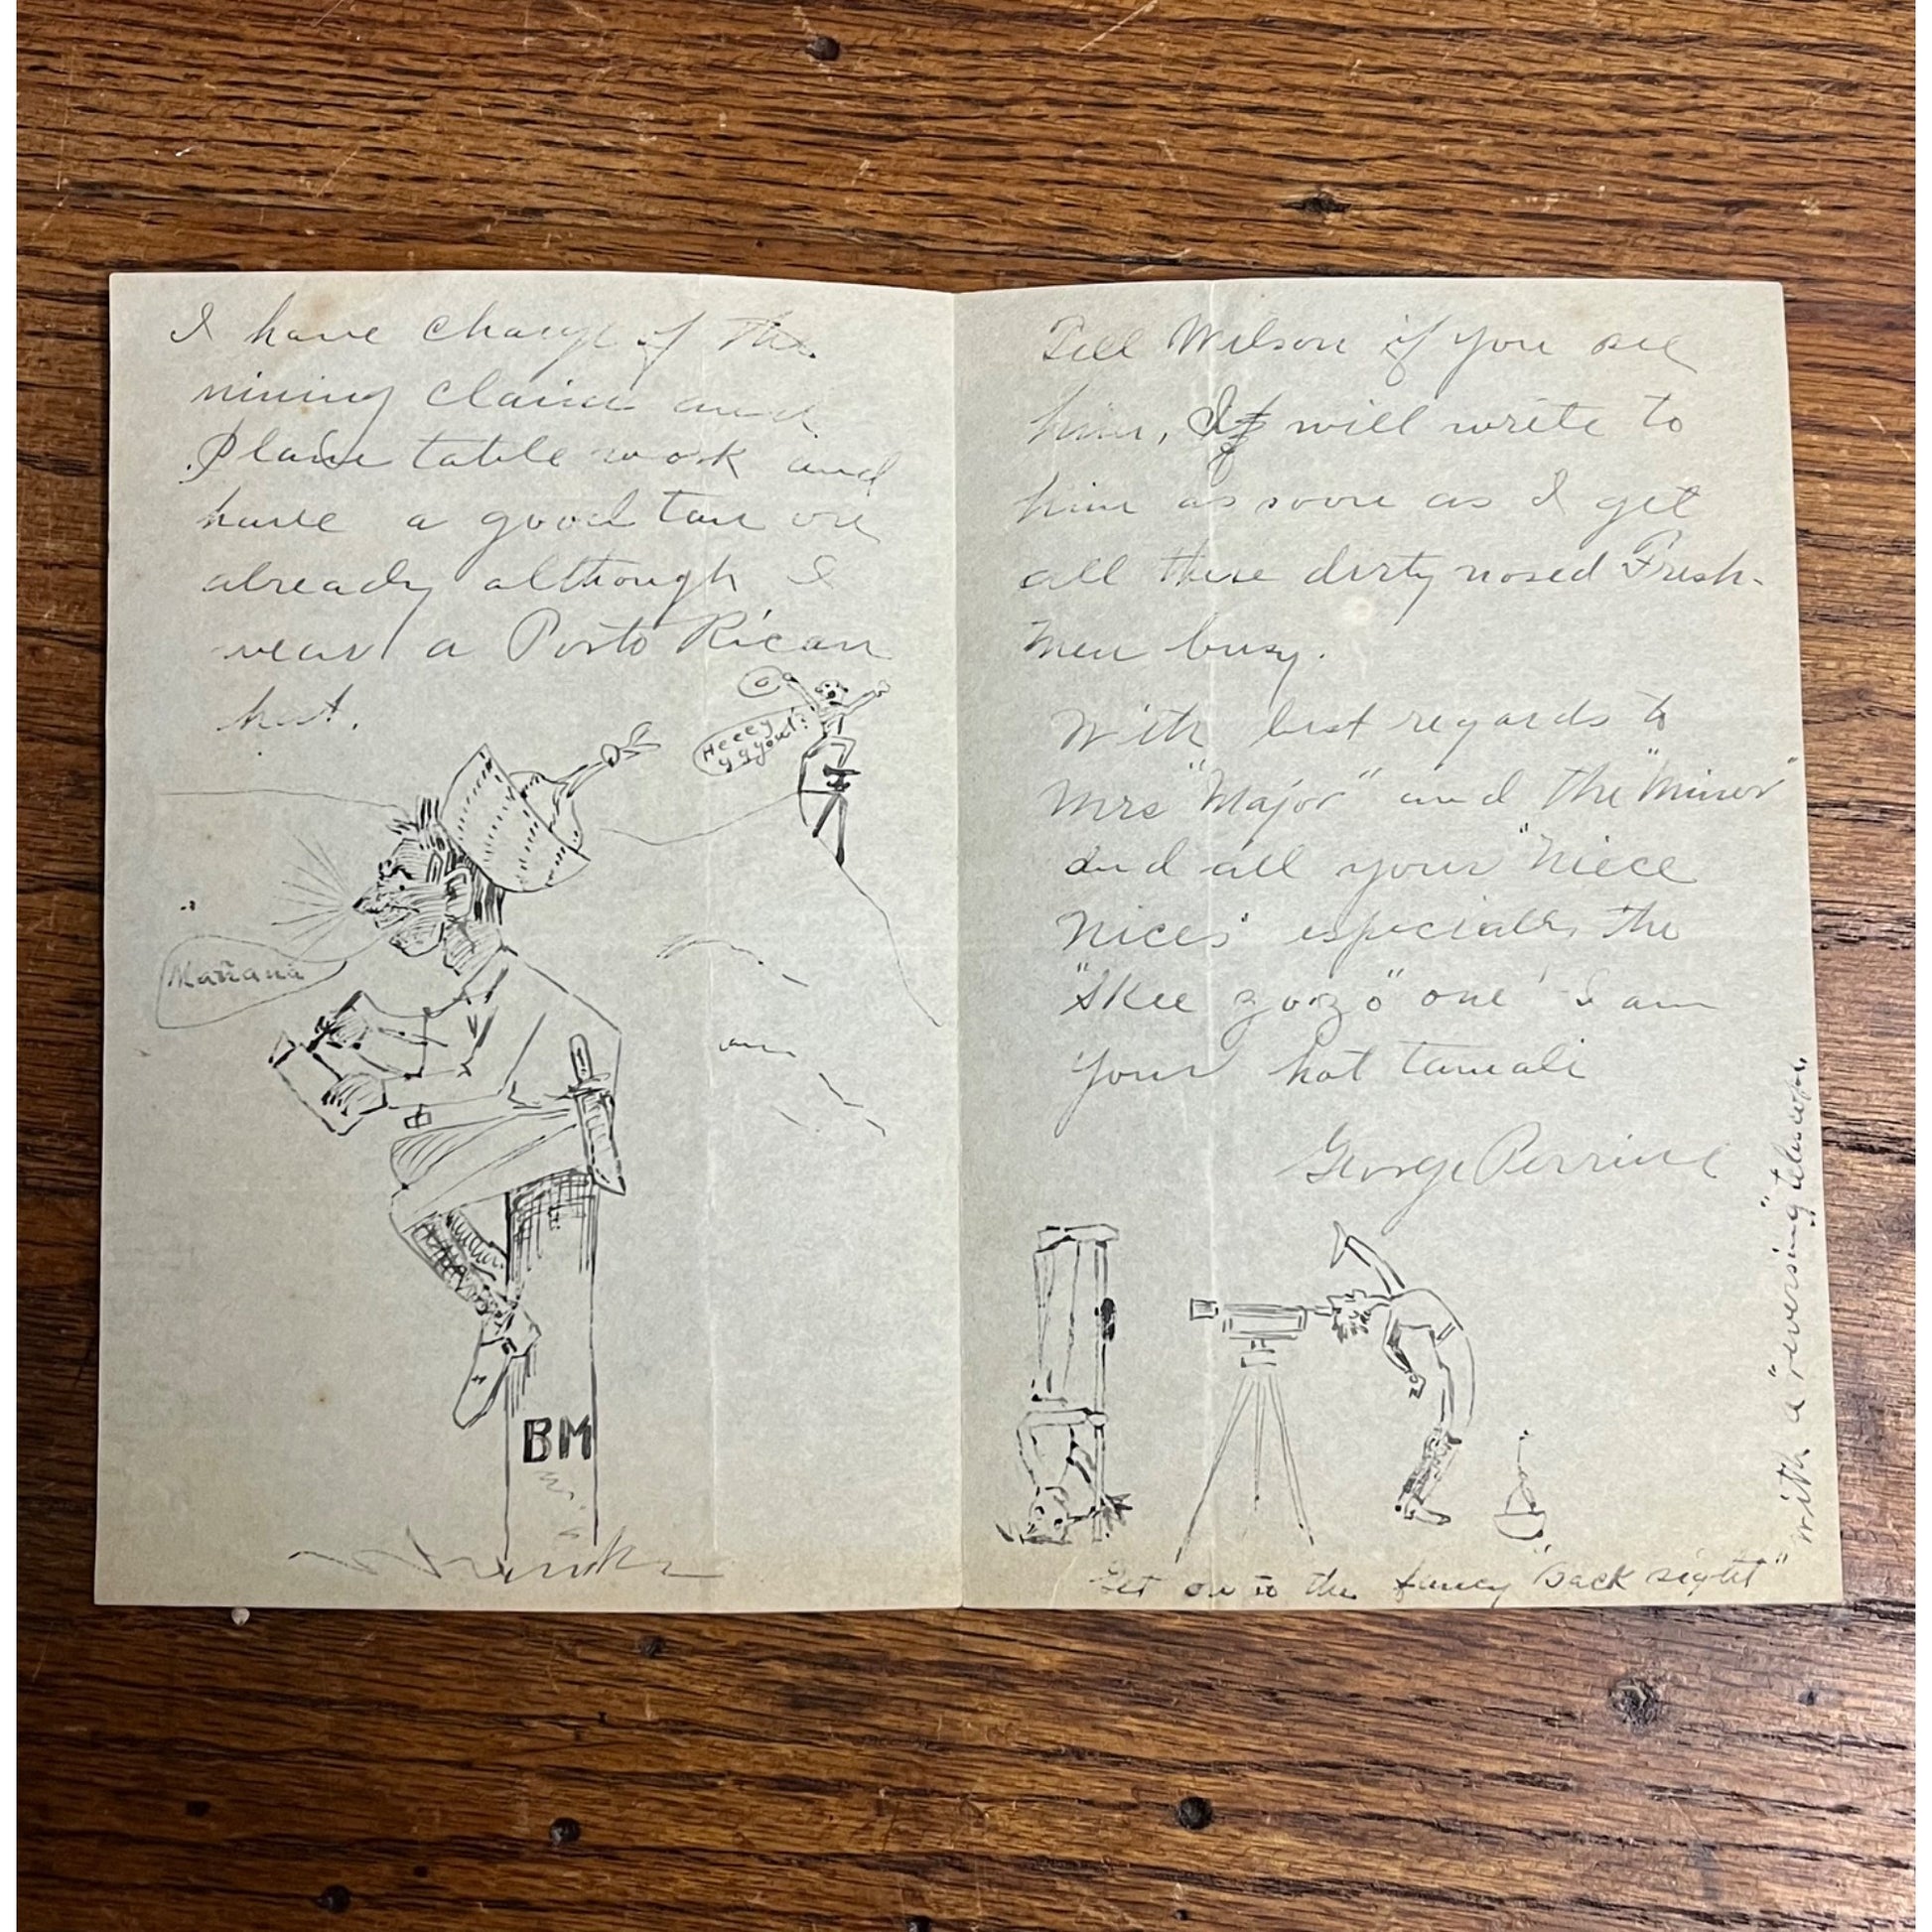 I have charge of the
mining claim and
Plane table work and
have a good tan on
already although I
wear a Porto Rican
hat.
Heeey
yggyout!?
Mañana
BM
Tell Wilson if you see
him, If will write to
him as soon as I get
all these dirty nosed Fresh-
men busy.
With best regards to
Mrs "Major" and the "Minor"
and all your "Niece
Nices" especially the
"Skee gozo" one I am
your hot tamali
George Perrine
Get on to the fancy "Back sight"
with a "reversing" telescope.